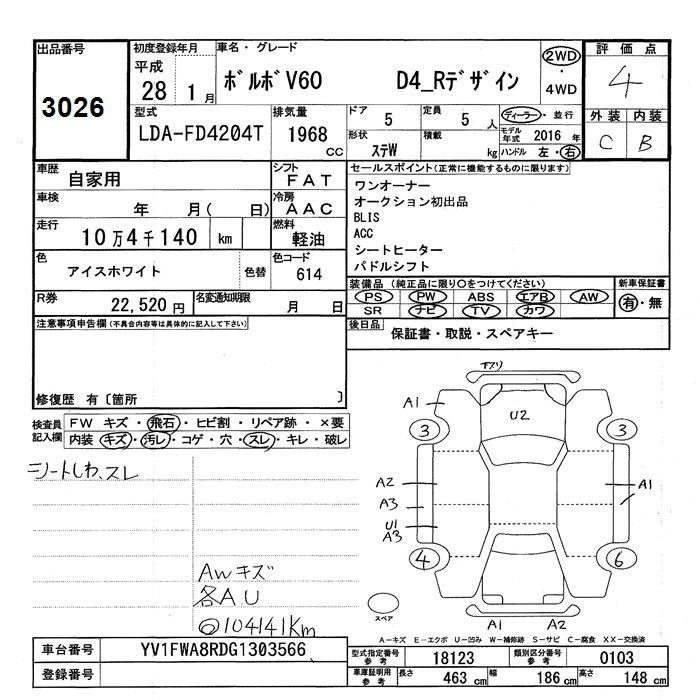 出品番号
3026
初度登録年月
平成
28 1 月
車名・グレード
ボルボV60 D4_Rデザイン
2WD
・
4WD
評価点
4
型式
LDA-FD4204T
排気量
1968
CC
ドア
5
定員
5 人
ディーラー・並行
形状
ステW
積載
kg
モデル年式 2016 年
ハンドル 左・右
外装 内装
C B
車歴
自家用
シフト
FAT
車検
年 月( 日)
冷房
AAC
走行
10万4千140 km
燃料
軽油
色
アイスホワイト
色替
色コード
614
R券
22,520 円
名変通知期限
月 日
セールスポイント(正常に機能するものに限ります)
ワンオーナー
オークション初出品
BLIS
ACC
シートヒーター
パドルシフト
装備品 (純正品に限り○をつけてください)
PS PW ABS エアB AW
SR ナビ TV カワ
新車保証書
有・無
後日品
保証書・取説・スペアキー
注意事項申告欄(不具合内容等は具体的に記入して下さい)
修復歴 有〔箇所 〕
検査員記入欄
FW キズ・飛石・ヒビ割・リペア跡・×要
内装 キズ・汚レ・コゲ・穴・スレ・キレ・破レ
シートしわ、スレ
AWキズ
各A.U
◎104141Km
下スリ
A1
U2
3
3
A2
A3
U1
A3
A1
4
6
スペア
A1
A2
A-キズ E-エクボ U-凹み W-補修跡 S-サビ C-腐食 XX-交換済
車台番号
YV1FWA8RDG1303566
登録番号
型式指定番号 参考
18123
類別区分番号 参考
0103
車庫証明用 参考
長さ 463 cm
幅 186 cm
高さ 148 cm